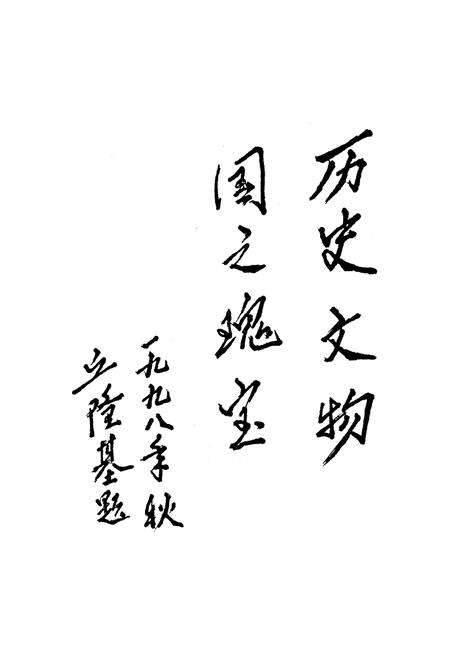 历史文物
国之瑰宝
一九九八年秋
隆基题